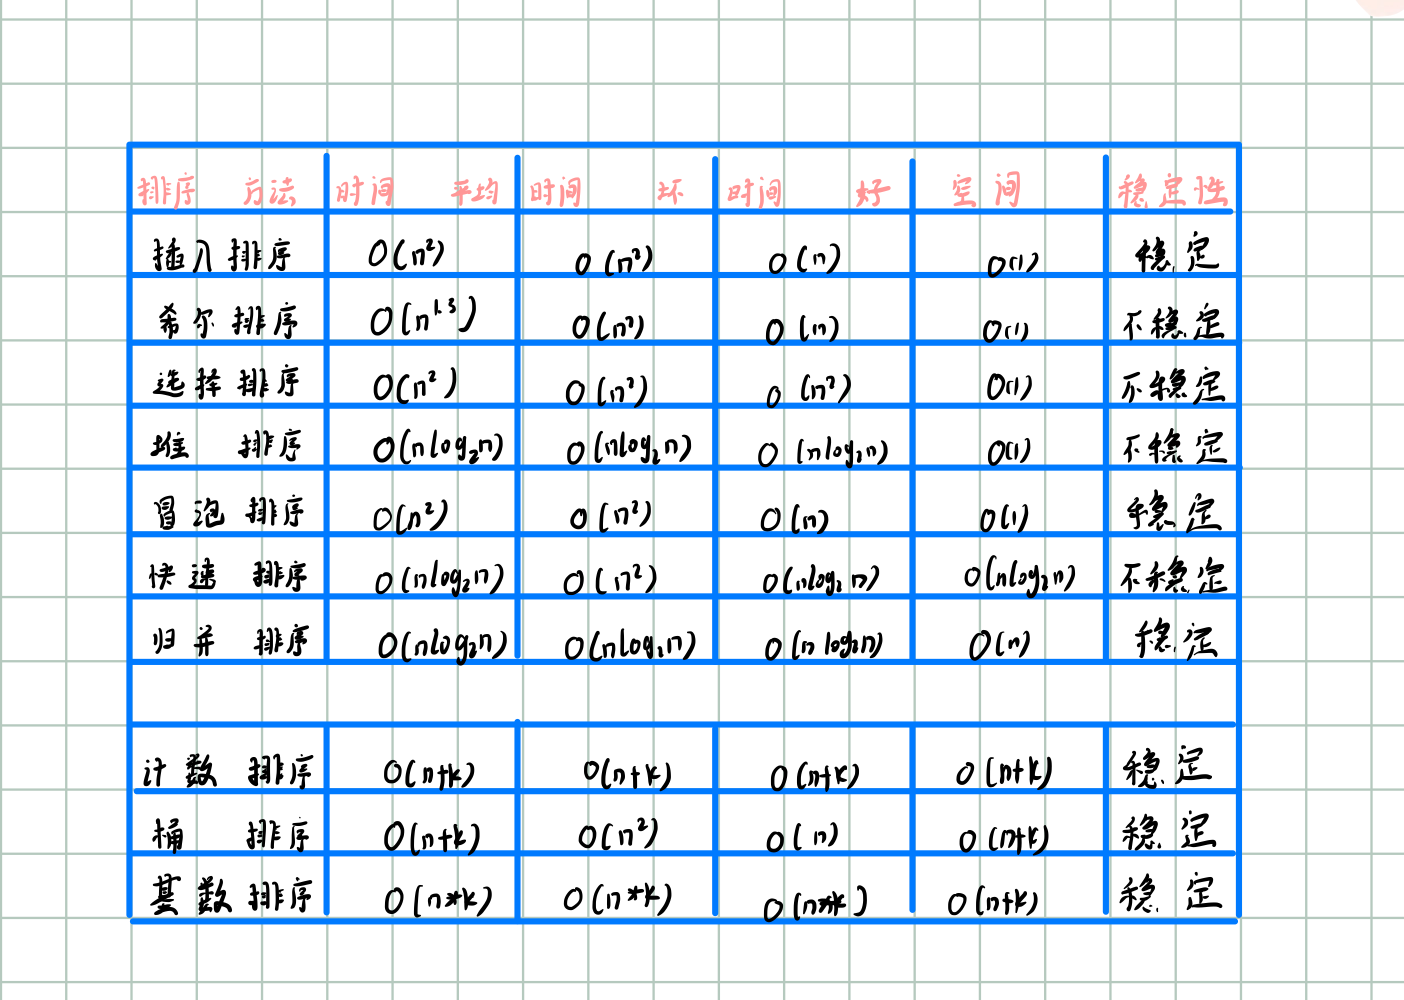 排序 方法 时间 平均 时间 坏 时间 好 空间 稳定性
插入排序 O(n²) O(n²) O(n) O(1) 稳定
希尔排序 O(n^1.3) O(n²) O(n) O(1) 不稳定
选择排序 O(n²) O(n²) O(n²) O(1) 不稳定
堆 排序 O(nlog₂n) O(nlog₂n) O(nlog₂n) O(1) 不稳定
冒泡排序 O(n²) O(n²) O(n) O(1) 稳定
快速 排序 O(nlog₂n) O(n²) O(nlog₂n) O(nlog₂n) 不稳定
归并 排序 O(nlog₂n) O(nlog₂n) O(nlog₂n) O(n) 稳定
计数 排序 O(n+k) O(n+k) O(n+k) O(n+k) 稳定
桶 排序 O(n+k) O(n²) O(n) O(n+k) 稳定
基数排序 O(n*k) O(n*k) O(n*k) O(n+k) 稳定